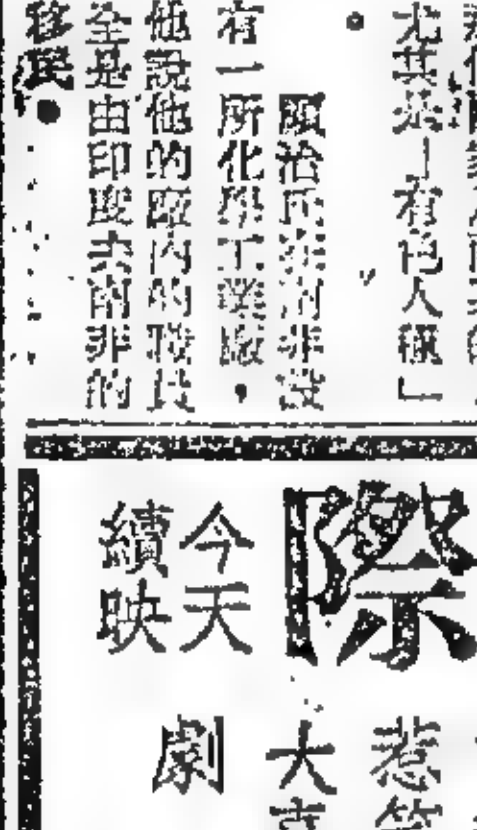 尤其是「有色人種」
。
顧治氏在南非設
有一所化學工業廠，
他說他的廠內的職員
全是由印度去南非的
移民。
際
今天
續映
惹笑
大喜
劇